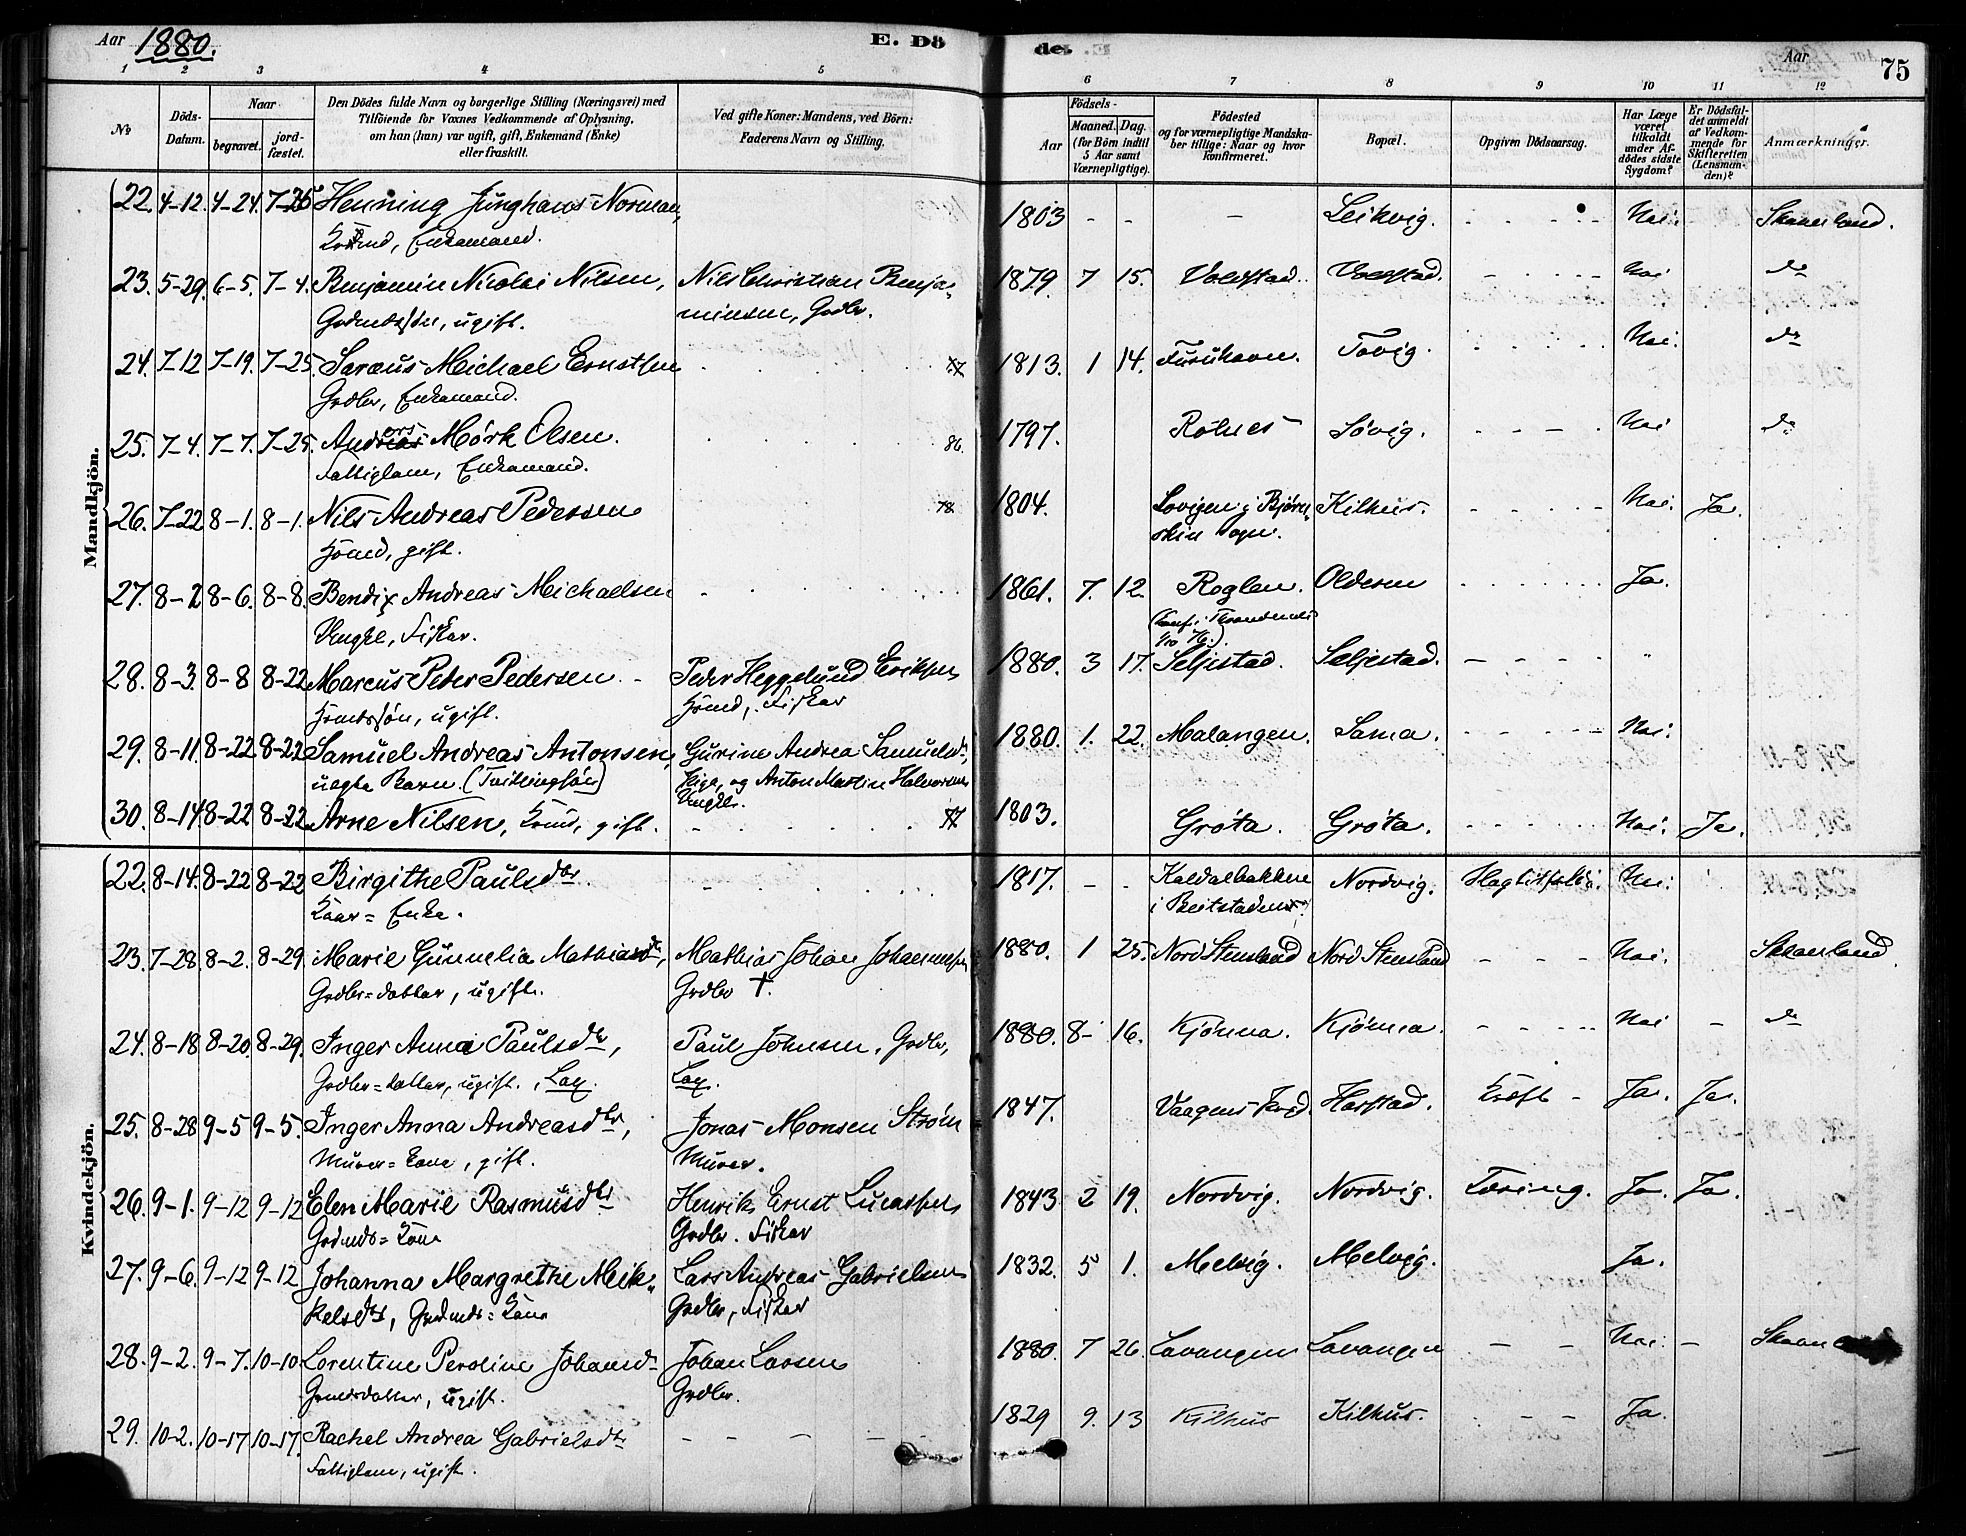 Aar 1880. E. Dö
de. Aar 75
1 2 3 4 5 6 7 8 9 10 11 12
No
Döds-Datum.
Naar
begravet.
jord-fæstet.
Den Dödes fulde Navn og borgerlige Stilling (Næringsvei) med
Tilföiende for Voxnes Vedkommende af Oplysning,
om han (hun) var ugift, gift, Enkemand (Enke)
eller fraskilt.
Ved gifte Koner: Mandens, ved Börn:
Faderens Navn og Stilling.
Födsels-
Aar
Maaned. Dag.
(for Börn indtil
5 Aar samt
Værnepligtige).
Födested
og for værnepligtige Mandska-
ber tillige: Naar og hvor
konfirmeret.
Bopæl.
Opgiven Dödsaarsag.
Har Læge
været
tilkaldt
under Af-
dödes sidste
Sygdom?
Er Dödsfal-
det anmeldt
af Vedkom-
mende for
Skifteretten
(Lensman-
den)?
Anmærkninger.
Mandkjön.
22. 4-12. 4-24. 7-25 Henning Junghans Norman, 1803 - - - Leikvig. Nei. Skaanland.
Enkemand.
23. 5-29. 6-5. 7-4. Benjamin Nicolai Nilsen, Nils Christian Benja- 1879. 7 15. Voldstad. Voldstad. Nei do
Grdmdssøn, ugift. minsen, Grdbr.
24. 7-12 7-19. 7-25. Saræus Michael Ernstsen 1813. 1 14. Furuhavn. Tovig. Nei. do
Grdbr, Enkemand.
25. 7-4. 7-7. 7-25. Anders Mörk Olsen. 86. 1797. Rolnes Sövig. Nei do
Fattiglem, Enkemand.
26. 7-22 8-1. 8-1. Nils Andreas Pedersen 78. 1804. Kilhus. Nei. Ja.
gift. skin Sogn.
27. 8-2 8-6. 8-8. Bendix Andreas Michaelsen 1861. 7. 12. Roglen. Olderen Ja.
Ungkl, Fisker.
28. 8-3. 8-8 8-22 Marcus Peter Pedersen Peder Heggelund Eriksen 1880. 3 17. Seljestad. Seljestad.
ugift. Fisker
29. 8-11. 8-22 8-22 Samuel Andreas Antonsen, Gurine Andrea Samuelsd, 1880. 1. 22. Malangen. Sama. Nei.
uægte Barn. (Tvillingsøn) Pige, og Anton Martin Halvorsen
Ungkl.
30. 8-14 8-22 8-22 Arne Nilsen, gift. 77 1803. Grøta. Grøta. Nei. Ja.
Kvindekjön.
22. 8-14. 8-22 8-22 Birgithe Paulsdtr 1817. - - Kaldalbakkene Nordvig. Nei.
Enke. i Beitstaden
23. 7-28. 8-2. 8-29. Marie Gunnelia Mathiasdtr, Mathias Johan Johannessen 1880. 1 25. Nord Stensland Nord Stensland Nei. Skaanland.
Grdbr=datter, ugift. Grdbr †.
24. 8-18 8-20. 8-29. Inger Anna Paulsdtr, Paul Johnsen, Grdbr, 1880. 8- 16. Kjönna. Kjönna. Nei - do
Grdbr=datter, ugift., Lap. Lap.
25. 8-28 9-5 9-5. Inger Anna Andreasdtr, Jonas Monsen Strøm 1847. Harstad. Kræft - Ja. Ja.
Murer=Kone, gift. Murer.
26. 9-1. 9-12 9-12 Elen Marie Rasmusdtr Henrik Ernst Lucassen 1843 2 19. Nordvig. Nordvig. Tæring. Ja. Ja.
Grdmds=Kone Grdbr. Fisker
27. 9-6. 9-12 9-12 Johanna Margrethe Mik- Lars Andreas Gabrielsen 1832. 5 1. Melvig. Melvig. Ja.
kelsdtr, Grdmds=Kone Grdbr, Fisker
28. 9-2. 9-7. 10-10 Lorentine Peroline Johansd Johan Larsen 1880. 7 26. Lavangen Lavangen Nei. - Skaan
datter, ugift. Grdbr.
29. 10-2. 10-17 10-17. Rachel Andrea Gabrielsdtr 1829 9. 13 Kilhus Kilhus. Ja.
Fattiglem, ugift.